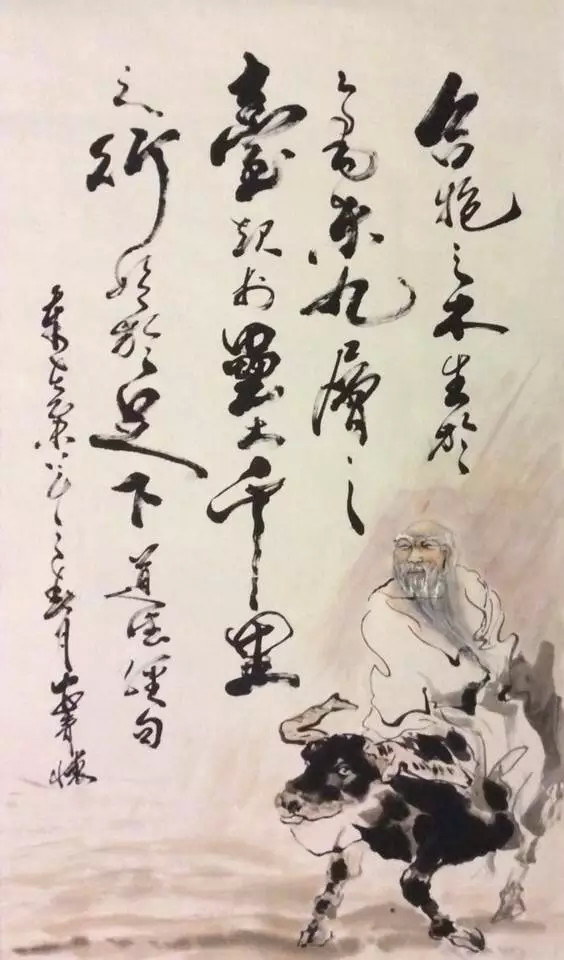 合抱之木生於
毫末九層之
臺起於壘土千里
之行始於足下 道德經句
春月